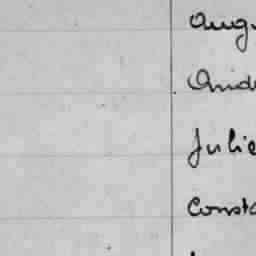 Aug
Andr
Julie
Consta